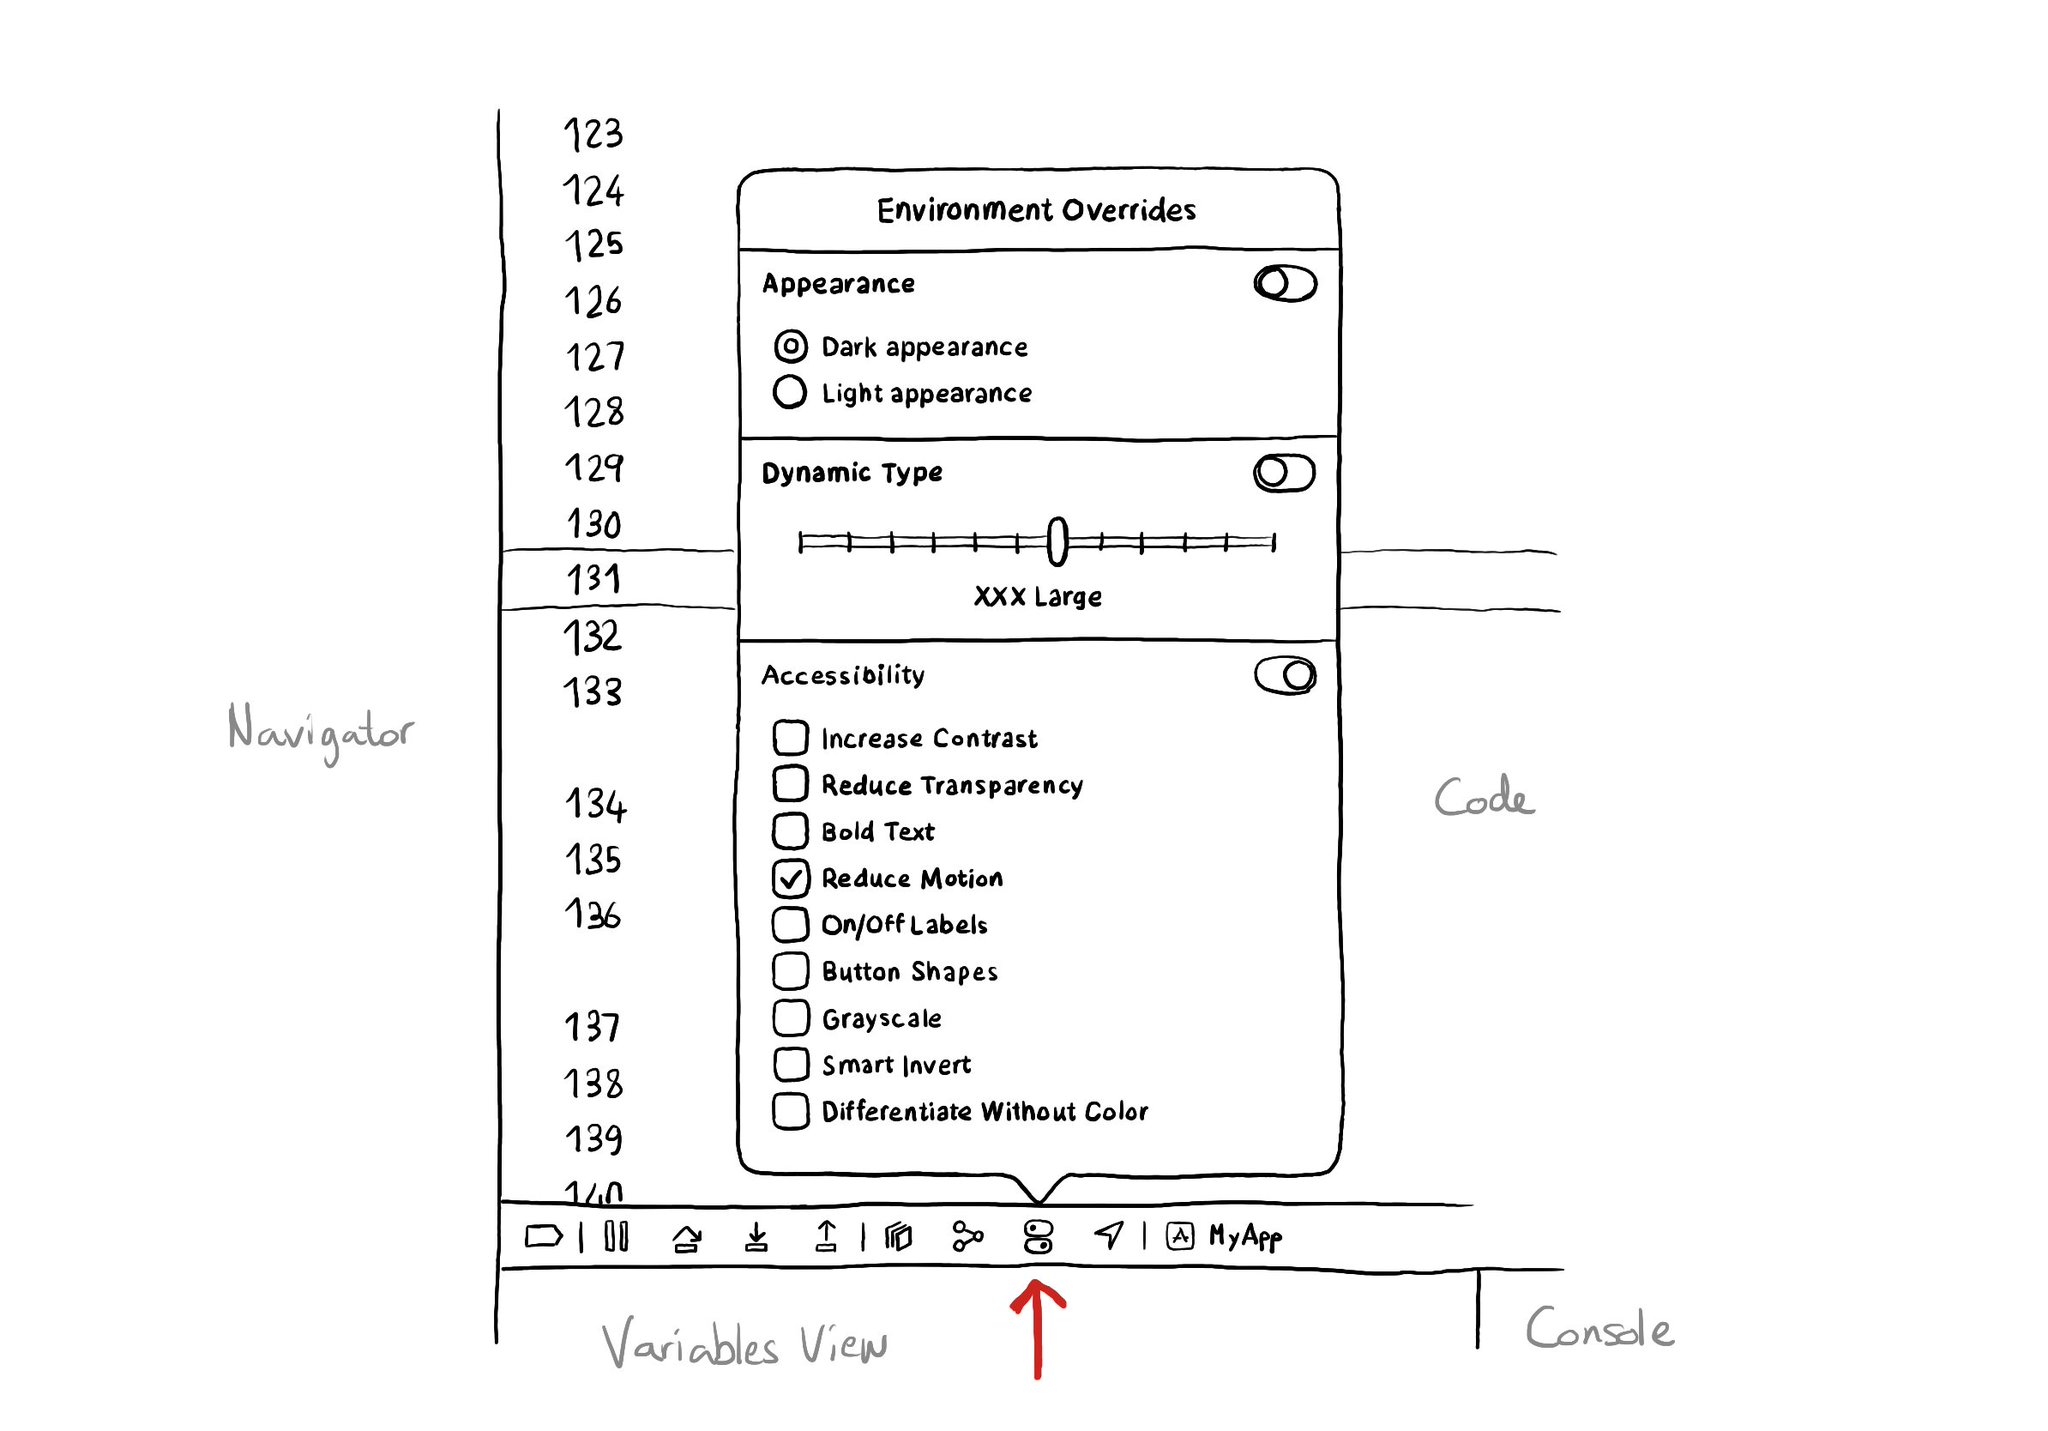 123
124
125
126
127
128
129
130
131
132
133
134
135
136
137
138
139
140
Environment Overrides
Appearance
Dark appearance
Light appearance
Dynamic Type
XXX Large
Accessibility
Increase Contrast
Reduce Transparency
Bold Text
Reduce Motion
On/Off Labels
Button Shapes
Grayscale
Smart Invert
Differentiate Without Color
Navigator
Code
A MyApp
Variables View
Console